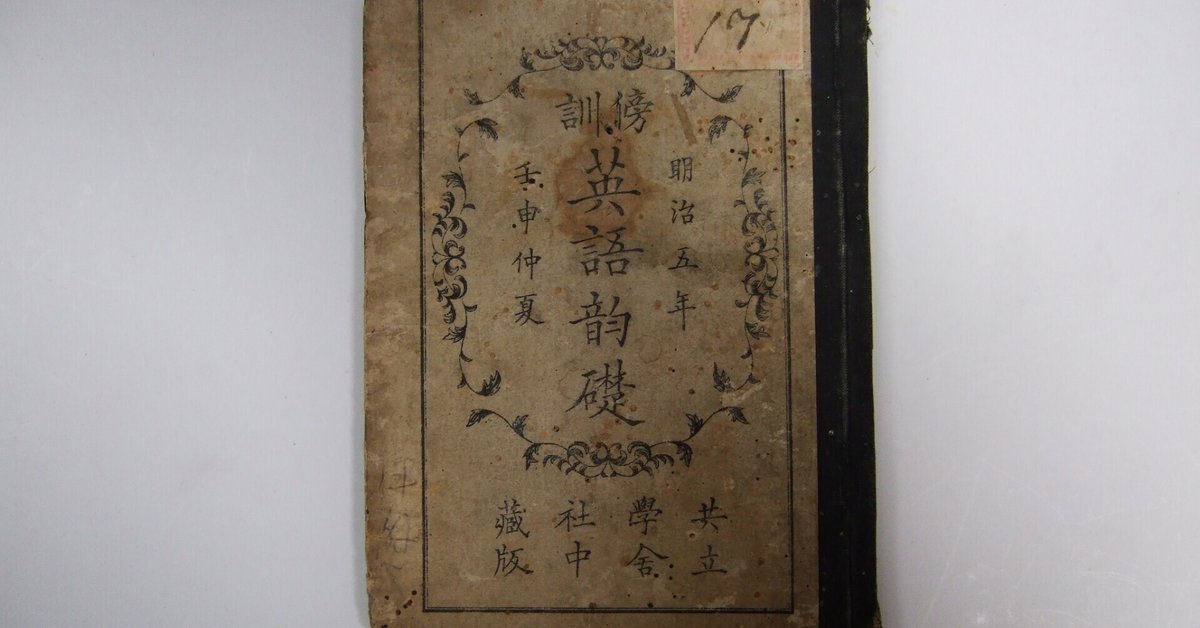 17.
傍訓
明治五年
英語韵礎
壬申仲夏
共立
學舍
社中
藏版